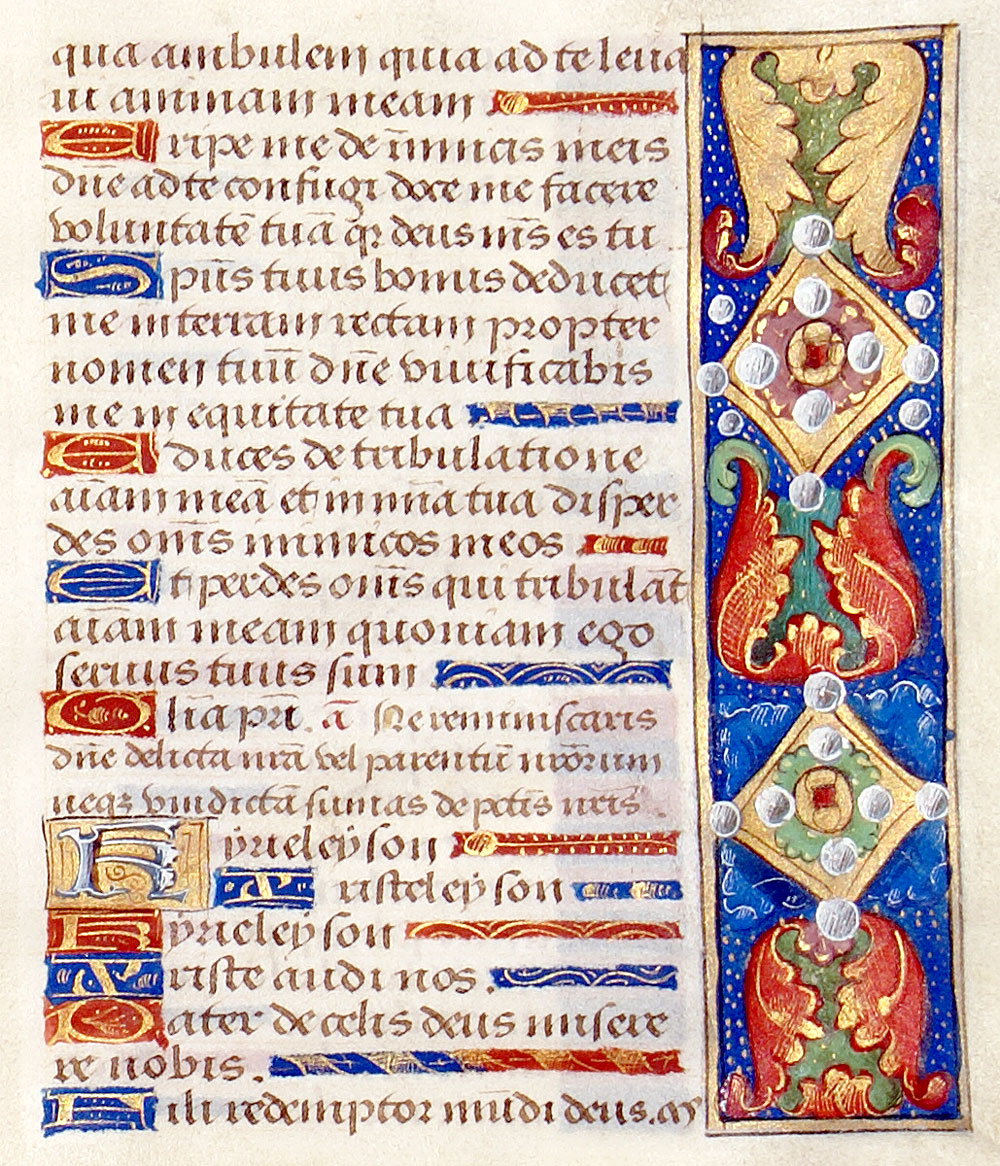 qua ambulem quia ad te leua
ui animam meam
Eripe me de inimicis meis
dñe ad te confugi doce me facere
voluntatē tuā qꝛ deus me͂s es tu
Spūs tuus bonus deducet
me in terram rectam propter
nomen tuū dñe viuificabis
me in equitate tua
Educes de tribulatione
aīam meā et in mīa tua disper
des om̄s inimicos meos
Et perdes om̄s qui tribulāt
aīam meam quoniam ego
seruus tuus sum
Glīa pr̄i . ā Ne reminiscaris
dñe delicta nr̄a vel parentū nr̄orum
neqꝫ vindictā sumas de pctīs nr̄is .
Kyrieleyson
Xpisteleyson
Kyrieleyson
Xpriste audi nos .
Pater de celis deus misere
re nobis .
Fili redemptor mūdi deus . m